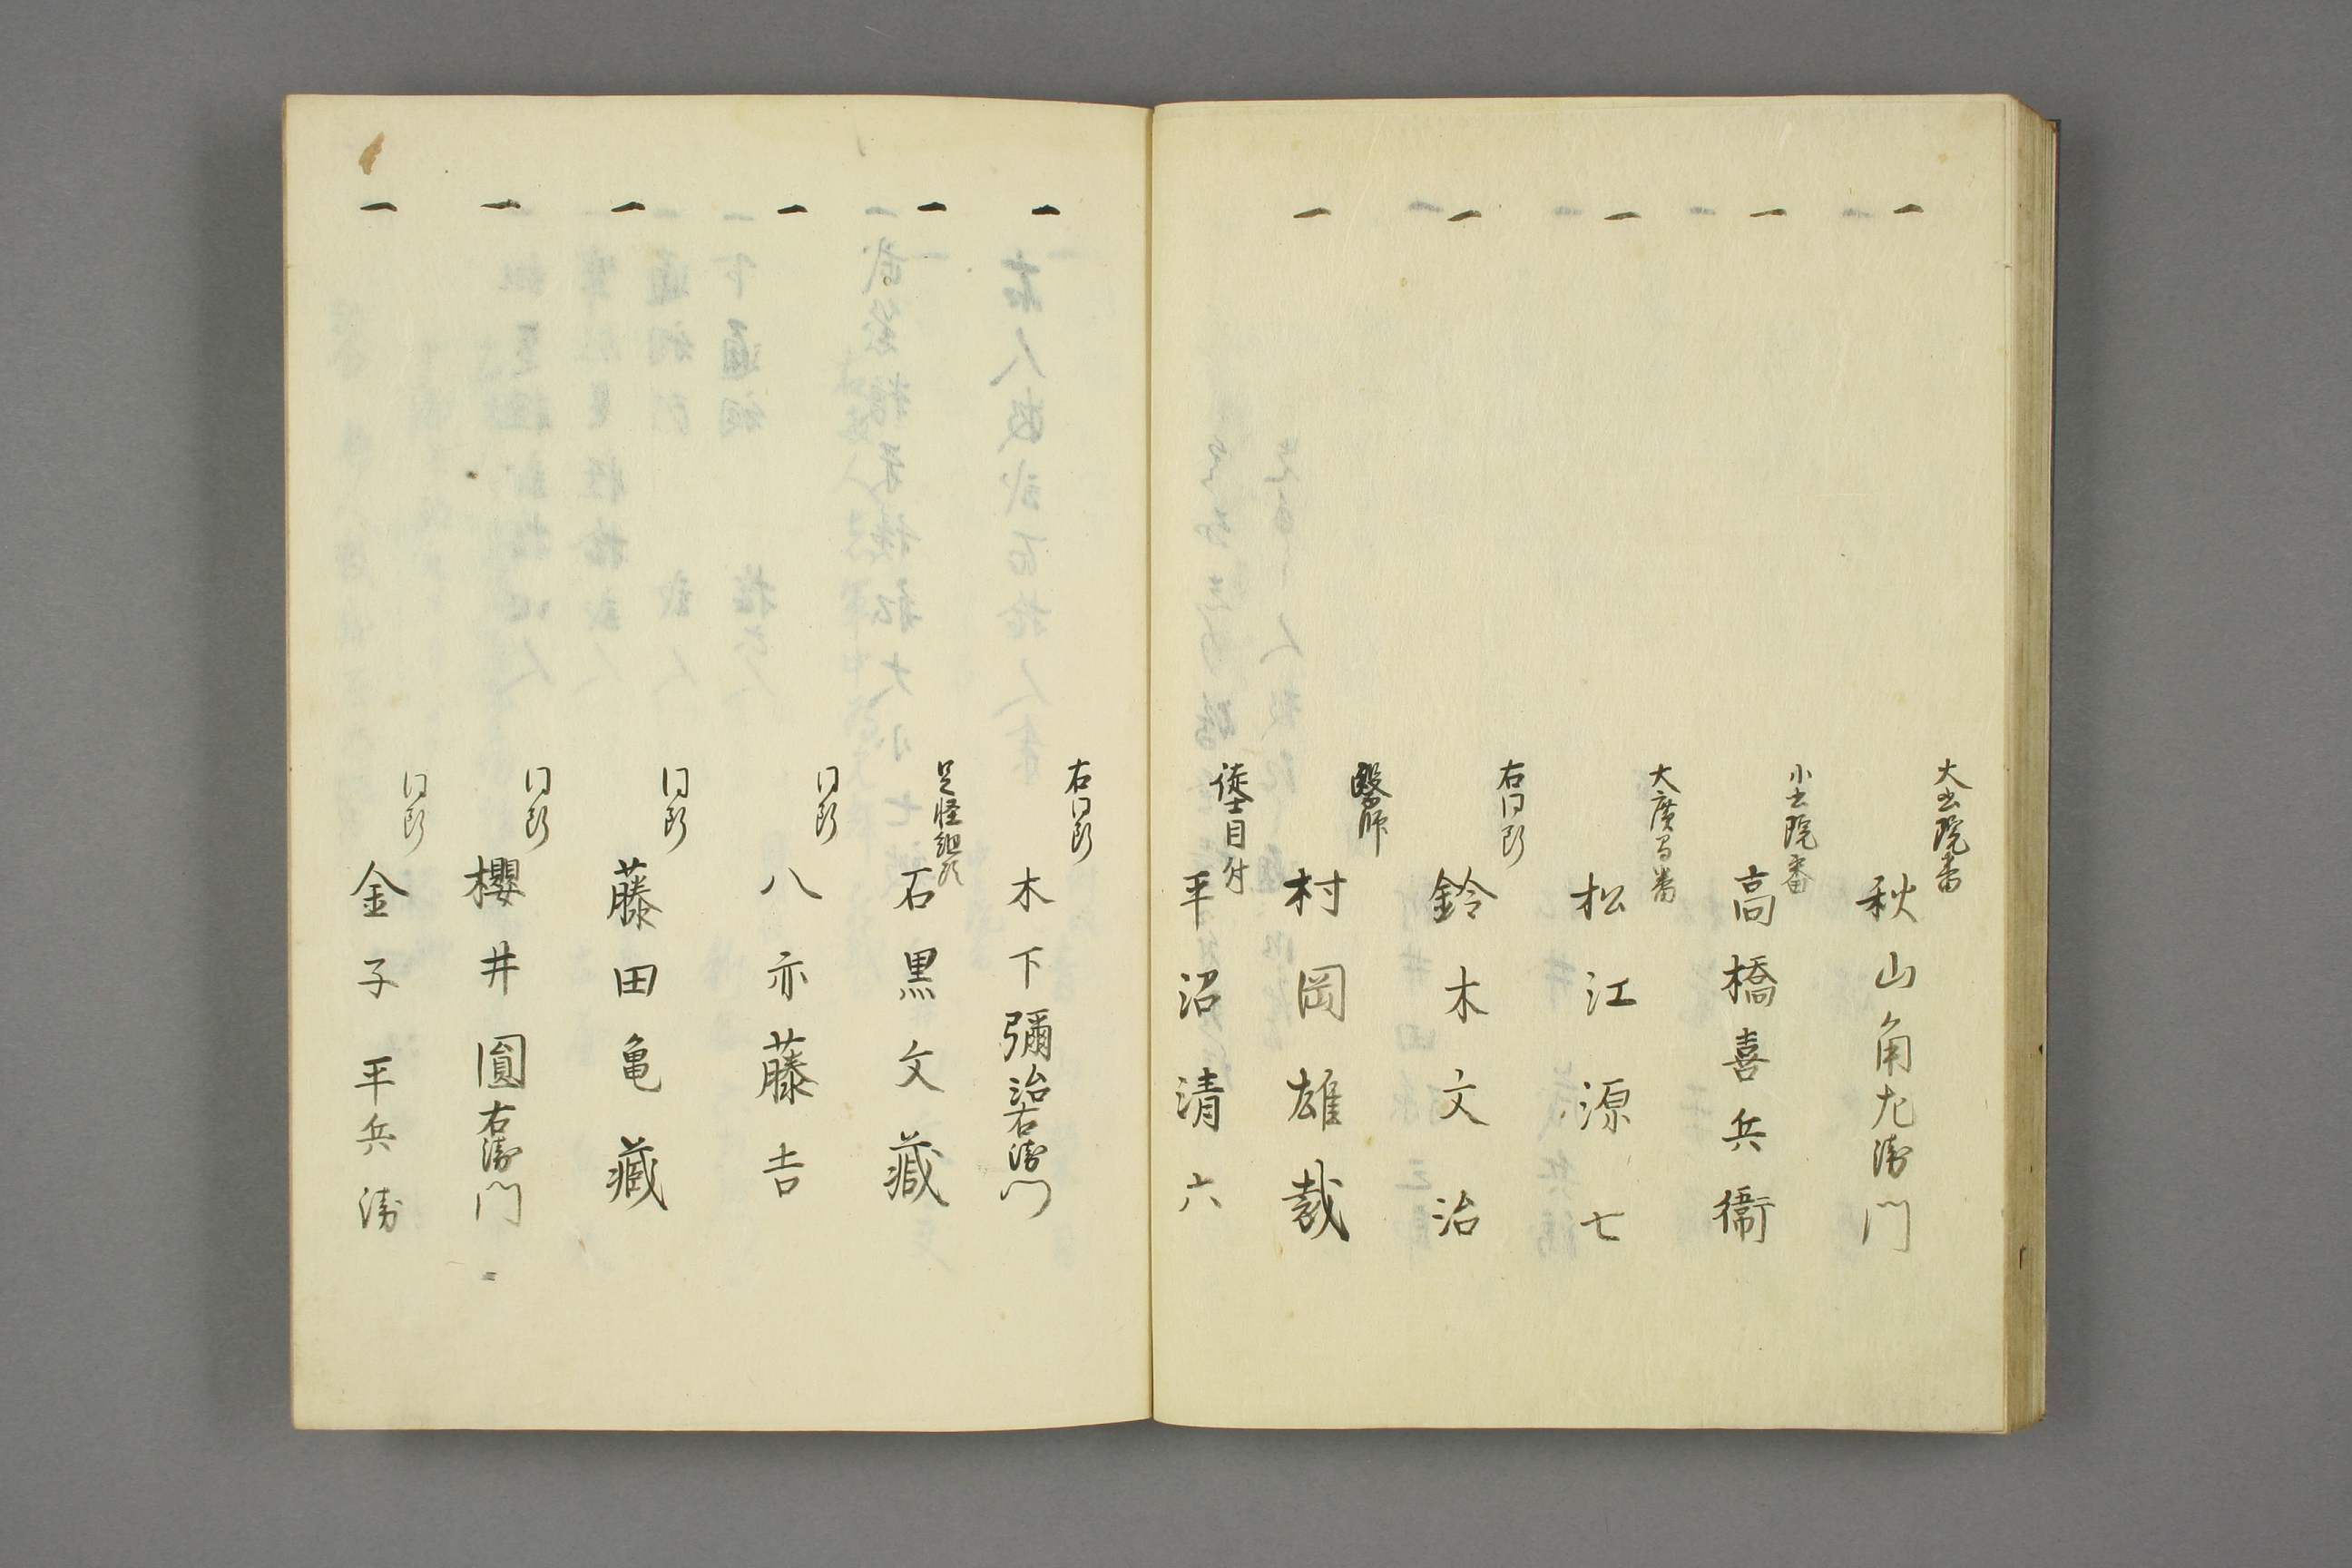 一　大書院番
秋山角左衛門
一　小書院番
高橋喜兵衞
一　大廣間番
松江源七
一　右同断
鈴木文治
一　醫師
村岡雄哉
徒士目付
平沼清六
一　右同断
木下彌治右衛門
一　足軽組頭
石黒文藏
一　同断
八木藤吉
一　同断
藤田亀藏
一　同断
櫻井圓右衛門
一　同断
金子平兵衛